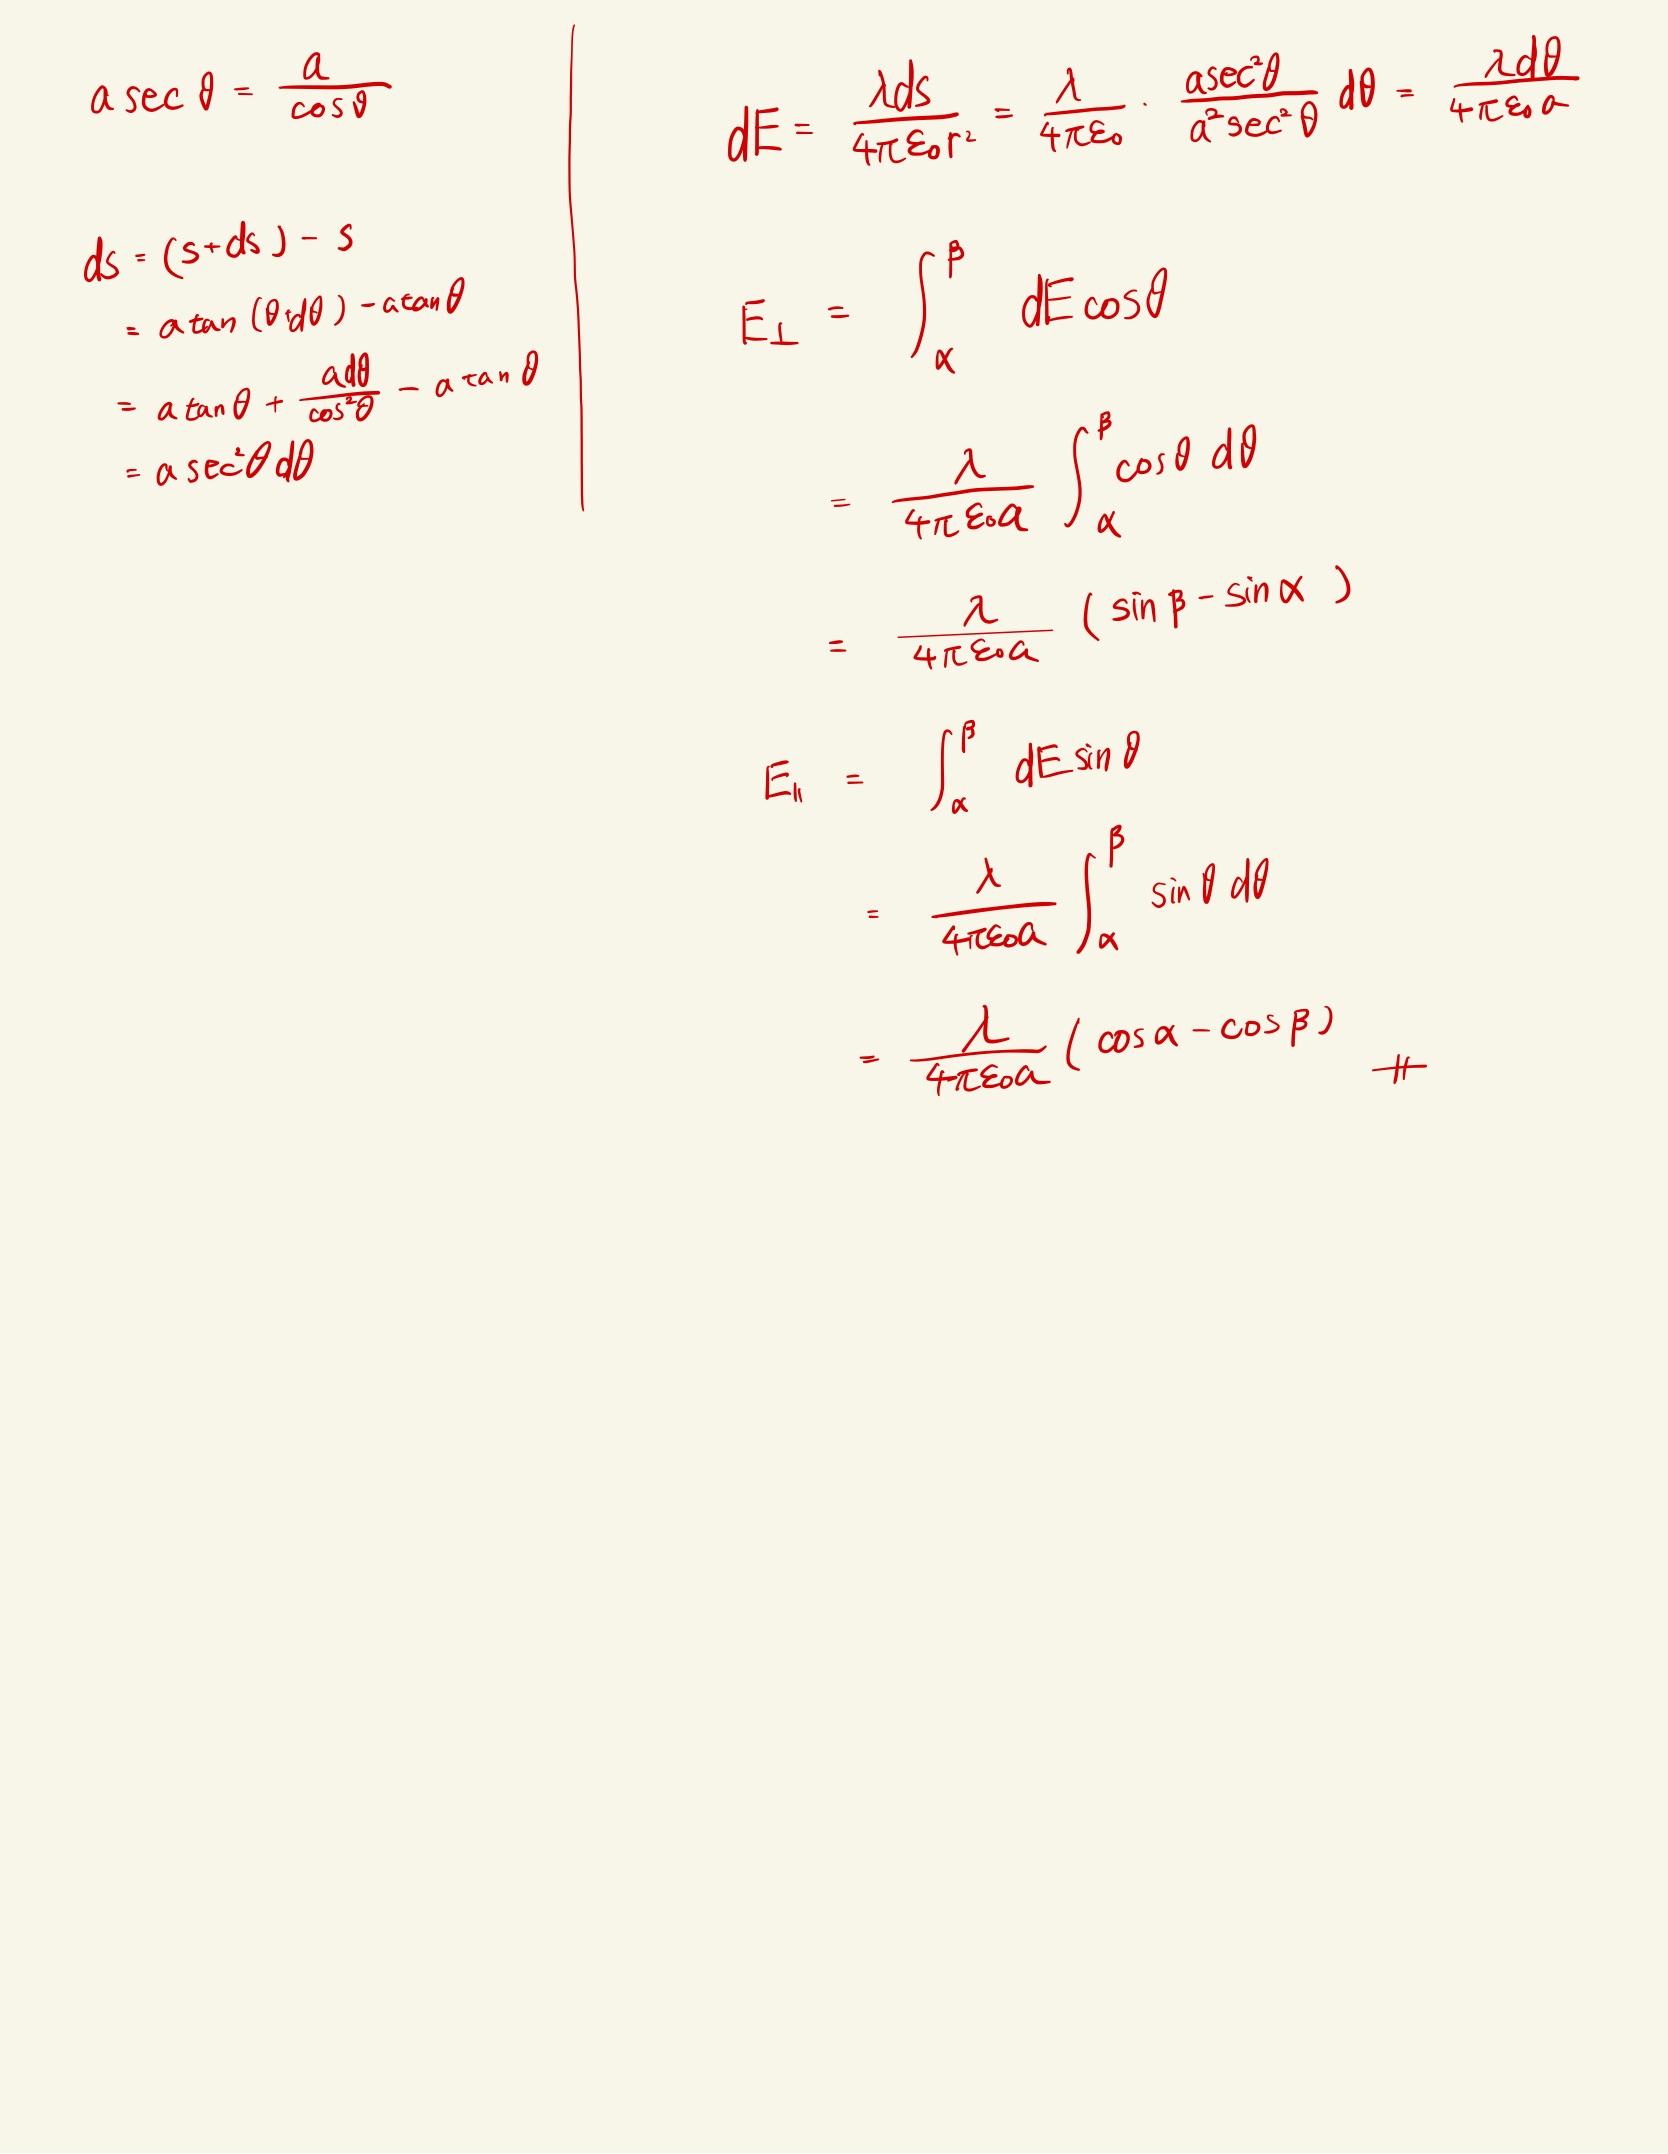 a sec θ = a / cos θ
ds = (s+ds) - s
= a tan (θ+dθ) - a tan θ
= a tan θ + adθ / cos²θ - a tan θ
= a sec²θ dθ
dE = λds / 4πε₀r² = λ / 4πε₀ · asec²θ / a²sec²θ dθ = λdθ / 4πε₀a
E⊥ = ∫_α^β dE cosθ
= λ / 4πε₀a ∫_α^β cosθ dθ
= λ / 4πε₀a (sin β - sin α)
E∥ = ∫_α^β dE sin θ
= λ / 4πε₀a ∫_α^β sin θ dθ
= λ / 4πε₀a (cos α - cos β)